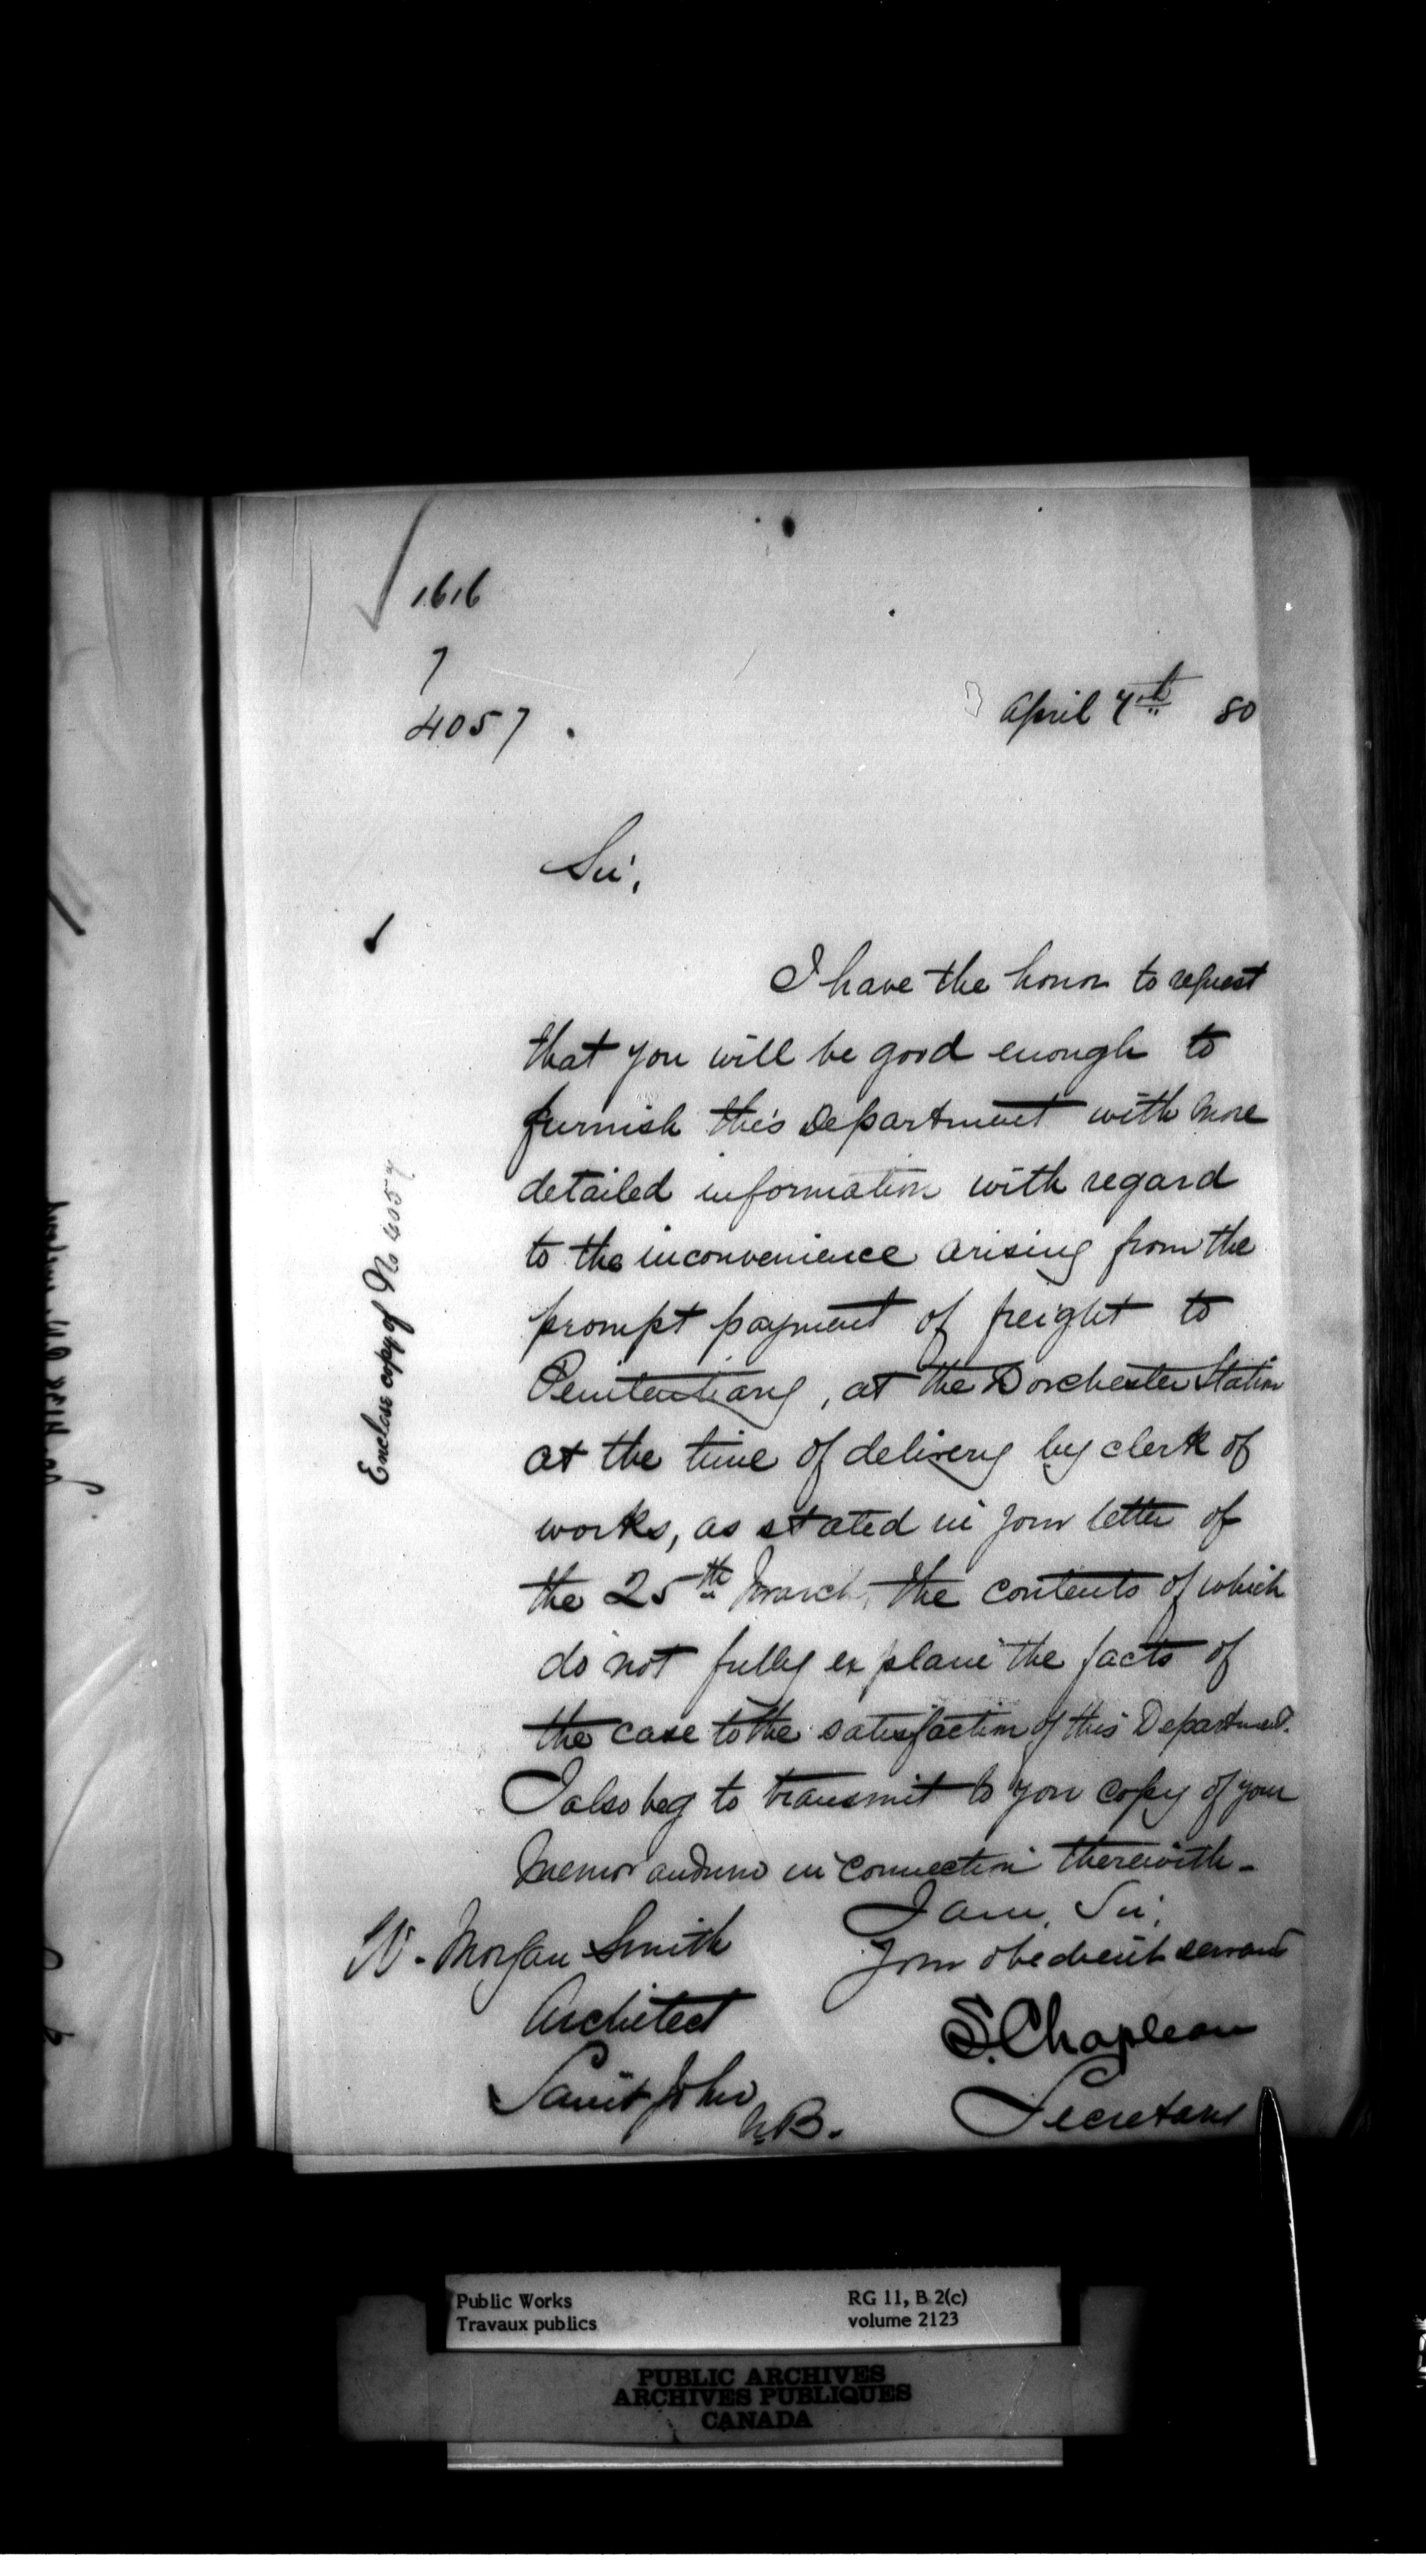 1616
7
4057.
April 7th 80
Sir,
I have the honor to request
that you will be good enough to
furnish this Department with more
detailed information with regard
to the inconvenience arising from the
prompt payment of freight to
Penitentiary, at the Dorchester Station
at the time of delivery by clerk of
works, as stated in your letter of
the 25th March, the contents of which
do not fully explain the facts of
the case to the satisfaction of this Department.
I also beg to transmit to you copy of your
Memorandum in connection therewith -
I am, Sir,
Your obedient servant
S. Chapleau
Secretary
W. Morgan Smith
Architect
Saint John
N.B.
Enclose copy of No 4057
Public Works
Travaux publics
RG 11, B 2(c)
volume 2123
PUBLIC ARCHIVES
ARCHIVES PUBLIQUES
CANADA